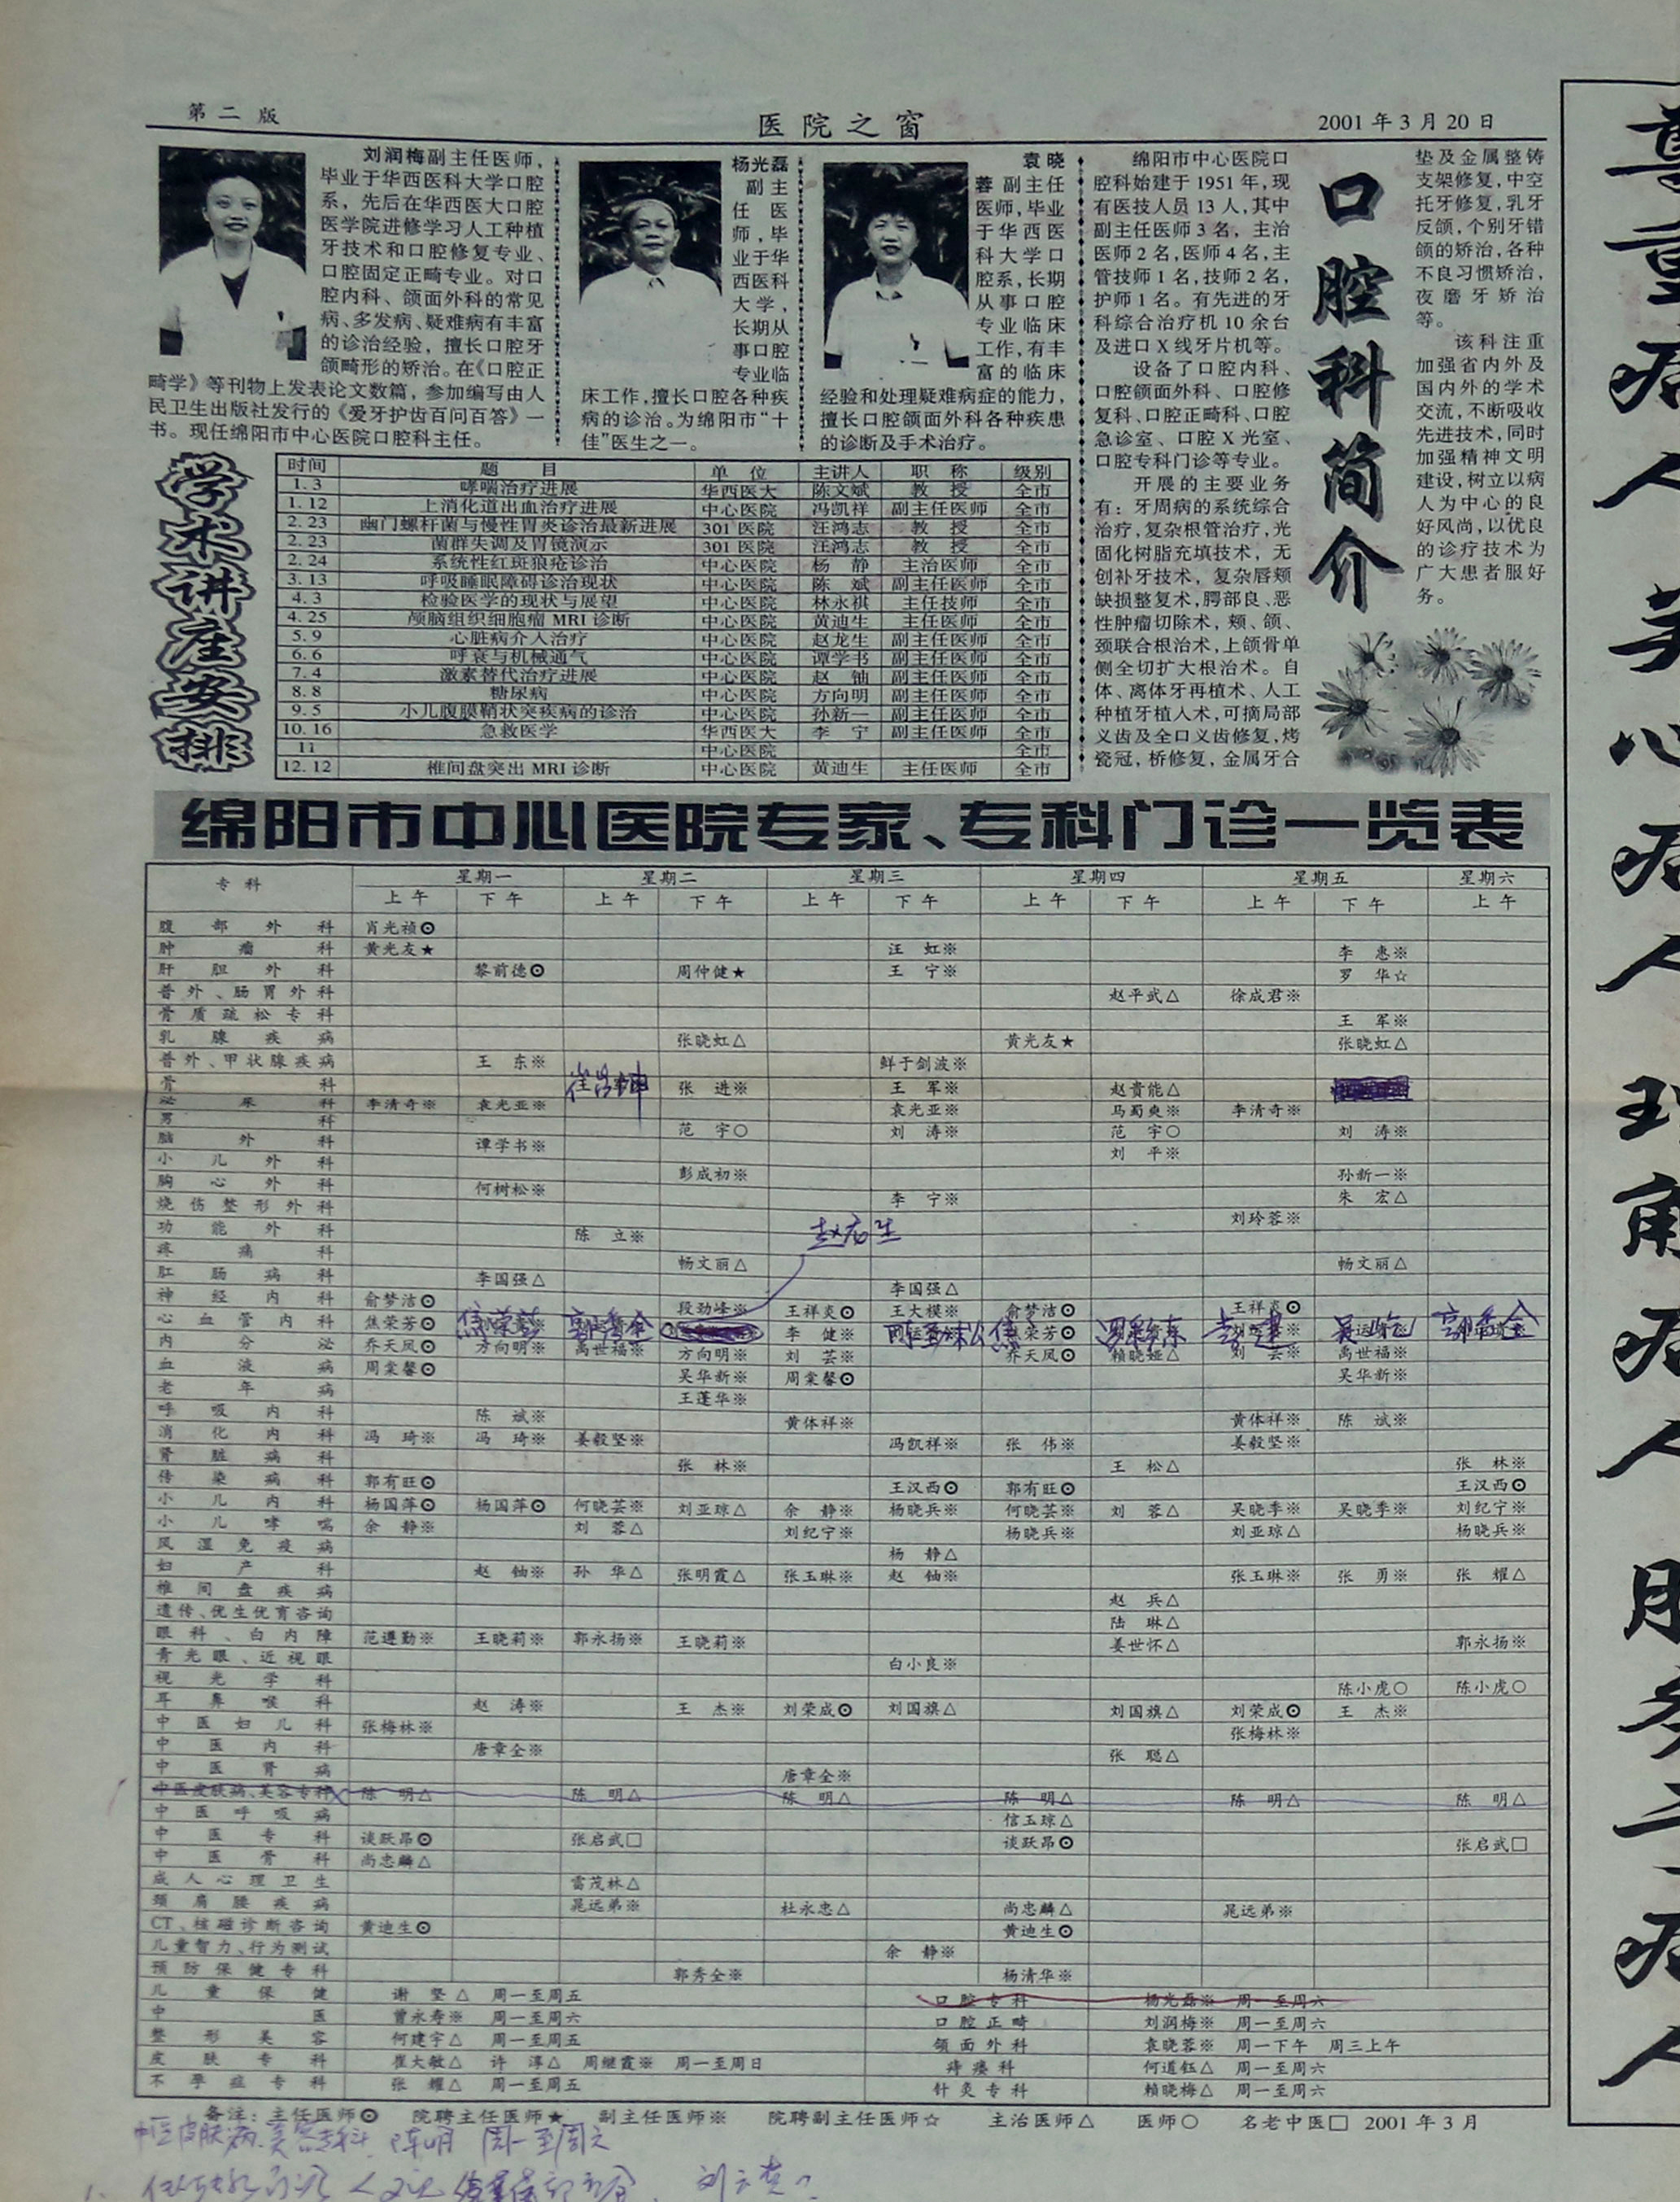 第二版
医院之窗
2001年3月20日
刘润梅副主任医师，
毕业于华西医科大学口腔
系，先后在华西医大口腔
医学院进修学习人工种植
牙技术和口腔修复专业、
口腔固定正畸专业。对口
腔内科、颌面外科的常见
病、多发病、疑难病有丰富
的诊治经验，擅长口腔牙
颌畸形的矫治。在《口腔正
畸学》等刊物上发表论文数篇，参加编写由人
民卫生出版社发行的《爱牙护齿百问百答》一
书。现任绵阳市中心医院口腔科主任。
杨光磊
副主
任医
师，毕
业于华
西医科
大学，
长期从
事口腔
专业临
床工作，擅长口腔各种疾
病的诊治。为绵阳市“十
佳”医生之一。
袁晓
蓉副主任
医师，毕业
于华西医
科大学口
腔系，长期
从事口腔
专业临床
工作，有丰
富的临床
经验和处理疑难病症的能力，
擅长口腔颌面外科各种疾患
的诊断及手术治疗。
口腔科简介
绵阳市中心医院口
腔科始建于1951年，现
有医技人员13人，其中
副主任医师3名，主治
医师2名，医师4名，主
管技师1名，技师2名，
护师1名。有先进的牙
科综合治疗机10余台
及进口X线牙片机等。
设备了口腔内科、
口腔颌面外科、口腔修
复科、口腔正畸科、口腔
急诊室、口腔X光室、
口腔专科门诊等专业。
开展的主要业务
有：牙周病的系统综合
治疗，复杂根管治疗，光
固化树脂充填技术，无
创补牙技术，复杂唇颊
缺损整复术，腭部良、恶
性肿瘤切除术，颊、颌、
颈联合根治术，上颌骨单
侧全切扩大根治术。自
体、离体牙再植术、人工
种植牙植入术，可摘局部
义齿及全口义齿修复，烤
瓷冠，桥修复，金属牙合
垫及金属整铸
支架修复，中空
托牙修复，乳牙
反颌，个别牙错
颌的矫治，各种
不良习惯矫治，
夜磨牙矫治
等。
该科注重
加强省内外及
国内外的学术
交流，不断吸收
先进技术，同时
加强精神文明
建设，树立以病
人为中心的良
好风尚，以优良
的诊疗技术为
广大患者服好
务。
学术讲座安排
时间 题目 单位 主讲人 职称 级别
1.3 哮喘治疗进展 华西医大 陈文斌 教授 全市
1.12 上消化道出血治疗进展 中心医院 冯凯祥 副主任医师 全市
2.23 幽门螺杆菌与慢性胃炎诊治最新进展 301医院 汪鸿志 教授 全市
2.23 菌群失调及胃镜演示 301医院 汪鸿志 教授 全市
2.24 系统性红斑狼疮诊治 中心医院 杨静 主治医师 全市
3.13 呼吸睡眠障碍诊治现状 中心医院 陈斌 副主任医师 全市
4.3 检验医学的现状与展望 中心医院 林永祺 主任技师 全市
4.25 颅脑组织细胞瘤MRI诊断 中心医院 黄迪生 主任医师 全市
5.9 心脏病介入治疗 中心医院 赵龙生 副主任医师 全市
6.6 呼衰与机械通气 中心医院 谭学书 副主任医师 全市
7.4 激素替代治疗进展 中心医院 赵铀 副主任医师 全市
8.8 糖尿病 中心医院 方向明 副主任医师 全市
9.5 小儿腹膜鞘状突疾病的诊治 中心医院 孙新一 副主任医师 全市
10.16 急救医学 华西医大 李宁 副主任医师 全市
11 中心医院 全市
12.12 椎间盘突出MRI诊断 中心医院 黄迪生 主任医师 全市
绵阳市中心医院专家、专科门诊一览表
专科 星期一 星期二 星期三 星期四 星期五 星期六
上午 下午 上午 下午 上午 下午 上午 下午 上午 下午 上午
腹部外科 肖光祯⊙
肿瘤科 黄光友★ 汪虹※ 李惠※
肝胆外科 黎前德⊙ 周仲健★ 王宁※ 罗华☆
普外、肠胃外科 赵平武△ 徐成君※
骨质疏松专科 王军※
乳腺疾病 张晓虹△ 黄光友★ 张晓虹△
普外、甲状腺疾病 王东※ 鲜于剑波※
骨科 张进※ 王军※ 赵贵能△
泌尿科 李清奇※ 袁光亚※ 袁光亚※ 马蜀爽※ 李清奇※
男科 范宇○ 刘涛※ 范宇○ 刘涛※
脑外科 谭学书※ 刘平※
小儿外科 彭成初※ 孙新一※
胸心外科 何树松※ 李宁※ 朱宏△
烧伤整形外科 刘玲蓉※
功能外科 陈立※
疼痛科 畅文丽△ 畅文丽△
肛肠病科 李国强△ 李国强△
神经内科 俞梦洁⊙ 段劲峰※ 王祥炎⊙ 王大模※ 俞梦洁⊙ 王祥炎⊙
心血管内科 焦荣芳⊙ 李健※ 焦荣芳⊙
内分泌 乔天凤⊙ 方向明※ 禹世福※ 方向明※ 刘芸※ 乔天凤⊙ 赖晓娅△ 刘芸※ 禹世福※
血液病 周棠馨⊙ 吴华新※ 周棠馨⊙ 吴华新※
老年病 王蓬华※
呼吸内科 陈斌※ 黄体祥※ 黄体祥※ 陈斌※
消化内科 冯琦※ 冯琦※ 姜毅坚※ 冯凯祥※ 张伟※ 姜毅坚※
肾脏病科 张林※ 王松△ 张林※
传染病科 郭有旺⊙ 王汉西⊙ 郭有旺⊙ 王汉西⊙
小儿内科 杨国萍⊙ 杨国萍⊙ 何晓芸※ 刘亚琼△ 余静※ 杨晓兵※ 何晓芸※ 刘蓉△ 吴晓季※ 吴晓季※ 刘纪宁※
小儿哮喘 余静※ 刘蓉△ 刘纪宁※ 杨晓兵※ 刘亚琼△ 杨晓兵※
风湿免疫病 杨静△
妇产科 赵铀※ 孙华△ 张明霞△ 张玉琳※ 赵铀※ 张玉琳※ 张勇※ 张耀△
椎间盘疾病 赵兵△
遗传、优生优育咨询 陆琳△
眼科、白内障 范遵勤※ 王晓莉※ 郭永扬※ 王晓莉※ 姜世怀△ 郭永扬※
青光眼、近视眼 白小良※
视光学科 陈小虎○ 陈小虎○
耳鼻喉科 赵涛※ 王杰※ 刘荣成⊙ 刘国旗△ 刘国旗△ 刘荣成⊙ 王杰※
中医妇儿科 张梅林※ 张梅林※
中医内科 唐章全※ 张聪△
中医肾病 唐章全※
中医皮肤病、美容专科 陈明△ 陈明△ 陈明△ 陈明△ 陈明△ 陈明△
中医呼吸病 信玉琼△
中医专科 谈跃昂⊙ 张启武□ 谈跃昂⊙ 张启武□
中医骨科 尚忠麟△
成人心理卫生 雷茂林△
颈肩腰疾病 晁远弟※ 杜永忠△ 尚忠麟△ 晁远弟※
CT、核磁诊断咨询 黄迪生⊙ 黄迪生⊙
儿童智力、行为测试 余静※
预防保健专科 郭秀全※ 杨清华※
儿童保健 谢坚△ 周一至周五 口腔专科 杨光磊※ 周一至周六
中医 曾永寿※ 周一至周六 口腔正畸 刘润梅※ 周一至周六
整形美容 何建宇△ 周一至周五 颌面外科 袁晓蓉※ 周一下午 周三上午
皮肤专科 崔大敏△ 许淳△ 周继霞※ 周一至周日 痔瘘科 何道钰△ 周一至周六
不孕症专科 张耀△ 周一至周五 针灸专科 赖晓梅△ 周一至周六
备注：主任医师⊙ 院聘主任医师★ 副主任医师※ 院聘副主任医师☆ 主治医师△ 医师○ 名老中医□ 2001年3月
中医皮肤病、美容专科 陈明 周一至周六